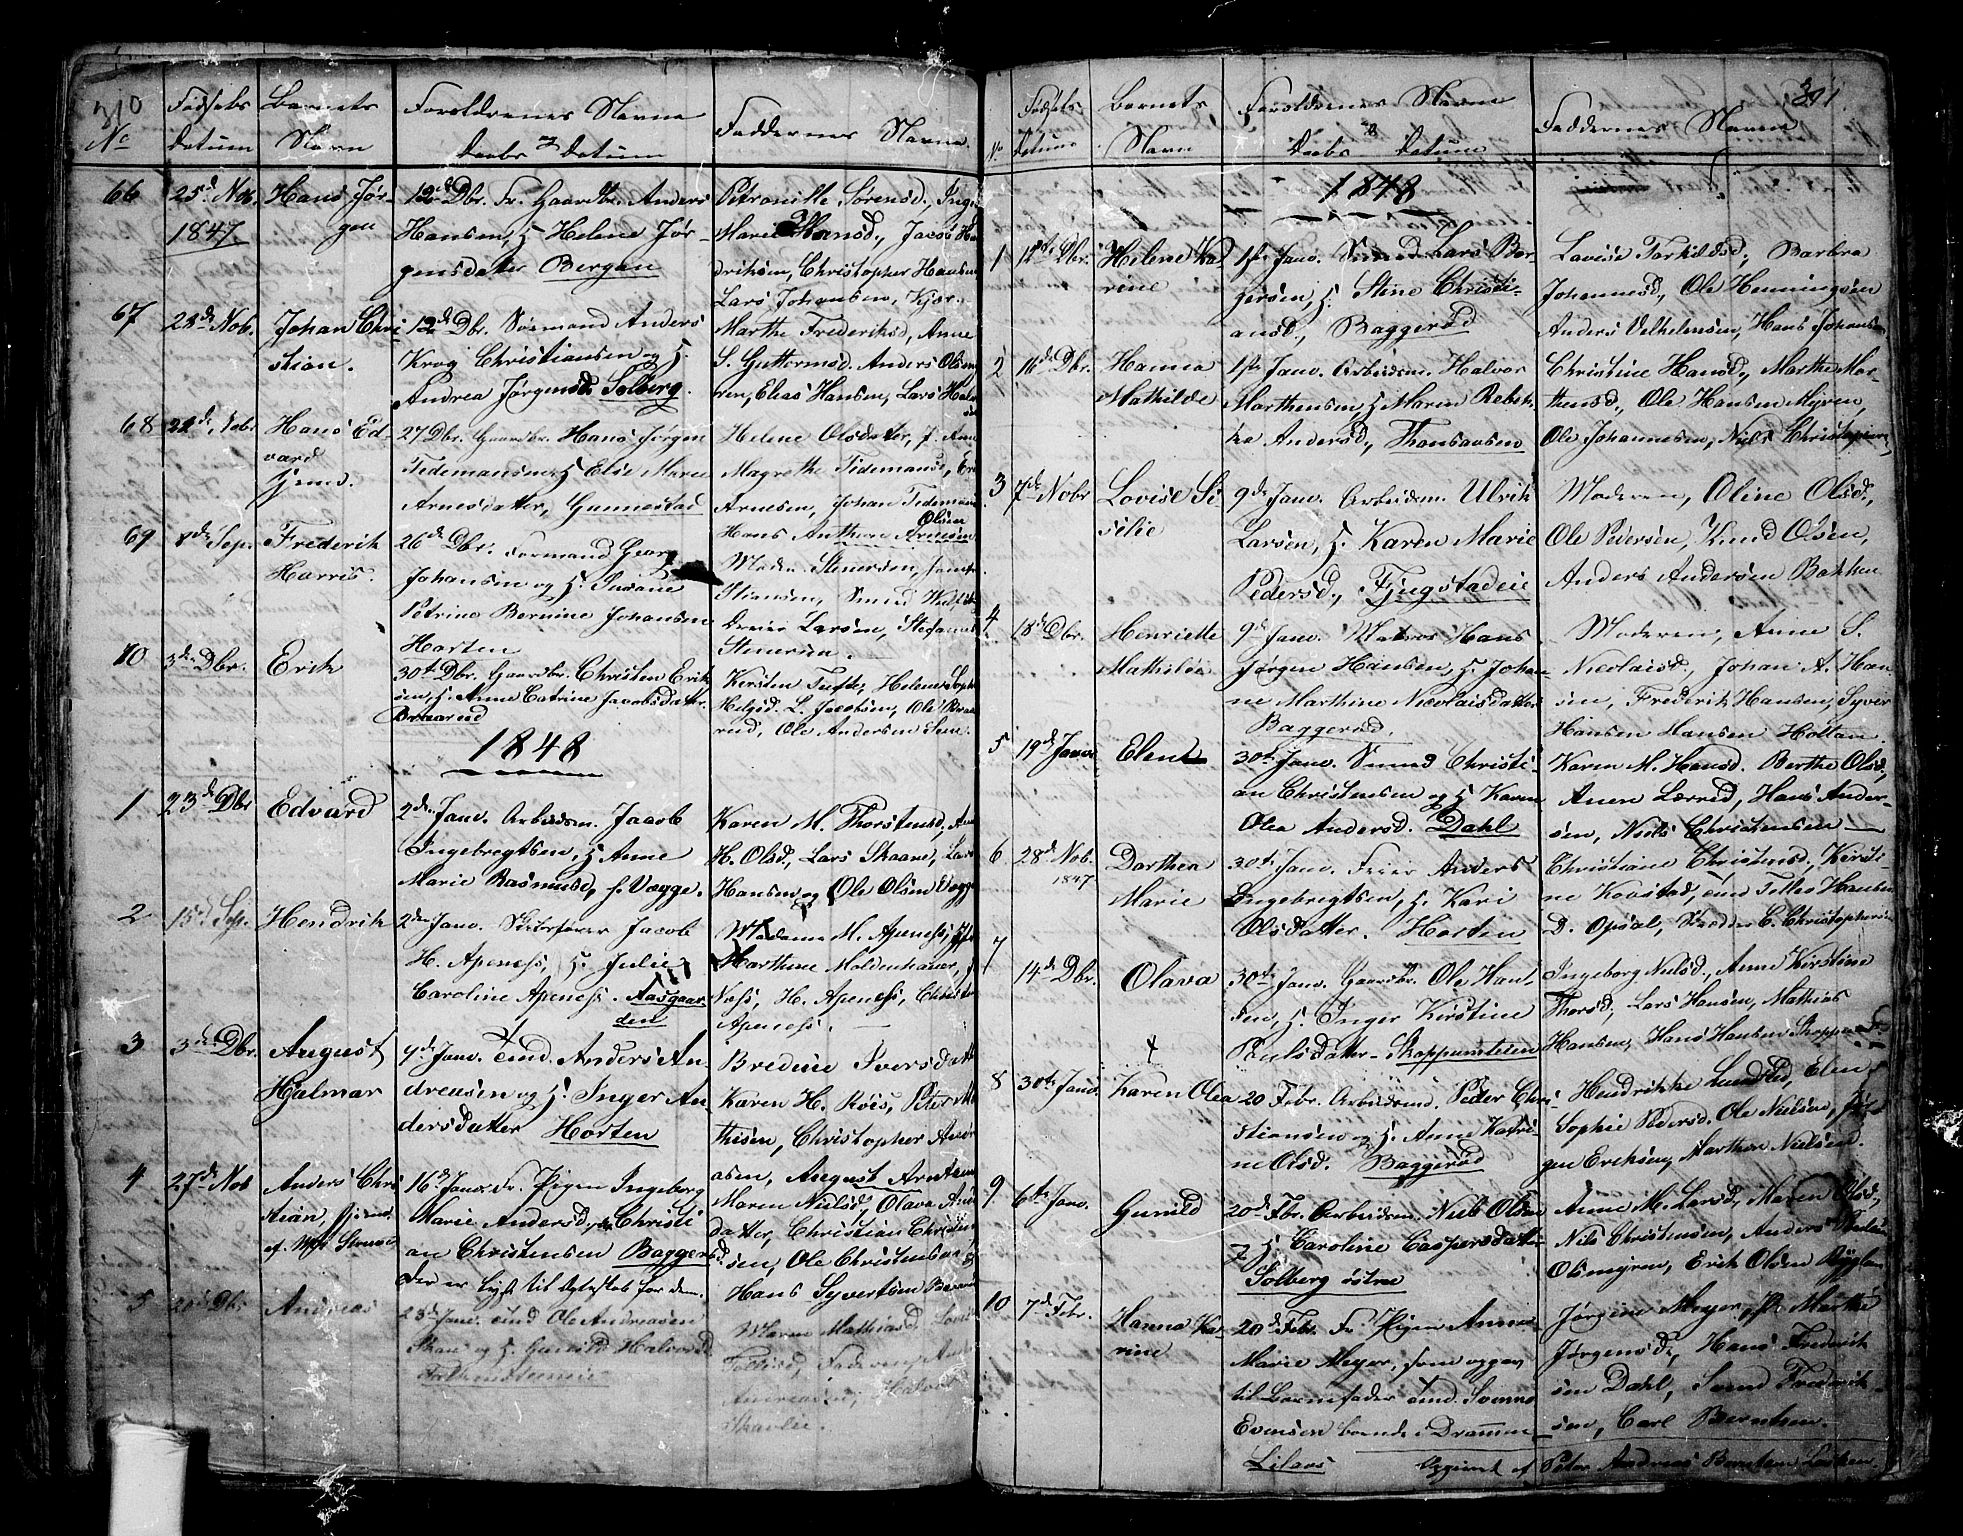 310
No
Fødsels
datum
Barnets
Navn
Forældrenes Navne
Daabs og Datum
Faddernes Navne.
66
25d Nov.
1847.
Hans Jør-
gen
12d Dbr. Fr. Gaardbr. Anders
Hansen, H Helene Jør-
gensdatter Bergan
Petronille Sørensd., Inge
Marie Hansd., Jacob He
driksen, Christopher Hansen
Lars Johansen,
67
22d Nob.
Johan Chri
stian.
12d Dbr. Sømand Anders
Krog Christiansen og H.
Andrea Jørgensd. Solberg.
Marthe Frederiksd., Anne
S. Guttormsd. Anders Olsen
Elias Hansen, Lars Halv
68
22d Nobr
Hans Ed-
vard
Hjemd.
27 Dbr. Gaardbr. Hans Jørgen
Tidemansen, H Else Marie
Arnesdatter, Gunnestad
Helene Olsdatter, J. Ann
Magrethe Tidemansd.,
Arnesen, Johan Tideman
Hans Anthon Arnesen
Olsen
69
8d Sep.
Frederik
Harris.
26d Dbr. Formand Georg
Johansen og H.
Petrine Bernine Johansen
Horten
Stenersen,
Stiansen, Smed
Larsen, Stefanus
Stenersen.
70
3die Dbr.
Erik
30te Dbr. Gaardbr. Christen Erik
sen, H. Anne Catrine Jacobsdatter.
Braarød
Kirsten Tufte, Helene Soph
Helgsd. L. Jacobsen, Ole Braa
rud, Ole Andersen Sem.
1848
1
23d Dbr
Edvard
2den Janv. Arbeidsm. Jacob
Ingebregtsen, H Anne
Marie Rasmusd, f. Vægge.
Karen M. Thorstensd, An
H. Olsd., Lars Skaane, Lars
Hansen og Ole Olsen Vægge
2
15d Sep.
Hendrik
2den Janv. Skibsfører Jacob
H. Apeness, H. Julie
Caroline Apeness. Aasgaar
den
Madame M. Apeness,
Marthine Moldenhauer,
Næss, H. Apeness, Christ
Apeness.
3
3die Dbr.
August
Hjalmar
9d Janv. Tmd. Anders An
dreasen og H. Inger An
dersdatter Horten
Bredine Iversdatt
Karen H. Røis, Peter Ma
thisen, Christopher Andr
asen, August Arntsen
4
27d Nob
Anders Chri
stian, Hjemd.
16d Janv. Fr. Pigen Ingeborg
Marie Andersd, Christi
an Christensen Baggerød
Der er lyst til Ægteskab for dem.
Maren Nielsd, Olava And
datter, Christian Christian
sen, Ole Christensen
Hans Syvertsen
5
20de Dbr
Andreas
23d Janv. Tmd Ole Andreasen
Skau og H. Gunild Halvorsd
Falkensteneie
Maren Mathiasd, Lovis
Tollisd, Faderen, And
Andreasen, Halvor
311
No
Fødsels
Datum
Barnets
Navn
Forældrenes Navne
Daabs & Datum
Faddernes Navne
1848
1
12te Dbr.
Helene Ka
rine
1ste Janv. Smed Lars Bør
gersen, H. Stine Christi-
ansd., Baggerød
Lovise Torkildsd., Barbra
Johannesd., Ole Henningsen
Anders Vilhelmsen, Hans Johans
2
16de Dbr.
Hanna
Mathilde
1ste Janv. Arbeidsm. Halvor
Marthensen, H Maren Rebek
ka Andersd., Thonsaasen
Christine Hansd., Marthe Mar-
thensd., Ole Hansen Myren,
Ole Johannesen, Niels Christophersen,
3
7de Nobr
Lovise Si
silie
9de Janv. Arbeidsm. Ulrik
Larsen, H. Karen Marie
Pedersd., Fjugstadeie
Moderen, Oline Olsd.,
Ole Pedersen, Knud Olsen,
Anders Andersen Bakken
4.
18d Dbr.
Henriette
Mathilde
9d Janv. Matros Hans
Jørgen Hansen, H. Johan-
ne Marthine Nicolaisdatter
Baggerød.
Moderen, Anne S.
Nicolaisd., Johan A. Han
sen, Frederik Hansen, Syver
Hansen Hansen Holtan
5
19d Janv
Elene
30te Janv. Smed Christi-
an Christensen og H Karen
Olea Andersd. Dahl
Karen M. Hansd. Berthe Olsd.,
Anen Lærred, Hans Ander-
sen, Niels Christensen
6
28d Nob.
1847.
Dorthea
Marie
30te Janv. Feier Anders
Ingebregtsen, H. Kari
Olsdatter. Horten
Christiane Christensd., Kirsti-
ne Kaastad, Tmd Tolles Hansen
D. Opsal, Skræder C. Christophersen
7
14de Dbr.
Olava
30te Janv. Gaardbr. Ole Han-
sen, H. Inger Kirstine
Poulsdatter - Skoppumteien
Ingeborg Nielsd., Anne Kirstine
Thorsd., Lars Hansen, Mathias
Hansen, Hans Hansen Skoppum
8
30te Janv.
Karen Olea
20 Febr. Arbeidsmd. Peder Chri-
stiansen og H. Anne Katri-
ne Olsd. Baggerød
Hendrikke Lundstd, Elen
Sophie Pedersd. Ole Nielsen,
gen Eriksen, Marthen Nielsen.
9
6te Janv.
Gunild
20d Fbr. Arbeidsm. Niels Olsen
& H Caroline Caspersdatter
Solberg østre
Anne M. Larsd., Maren Olsd.,
Nils Christensen, Anders
Olsmyren, Erik Olsen Bygland
10
7de Febr.
Hanna Ka-
rine
20d Febr. Fr. Pigen Anne
Marie Meyer, som opgav
til Barnefader Tmd.
Evensen boende i Drammen
Lilaas
Opgivet af
Jørgine Meyer, P. Marthe
Jørgensd., Hans Frederik
sen Dahl, Svend Frederik-
sen, Carl Berntsen.
Peter Andreas Berntsen Løken.